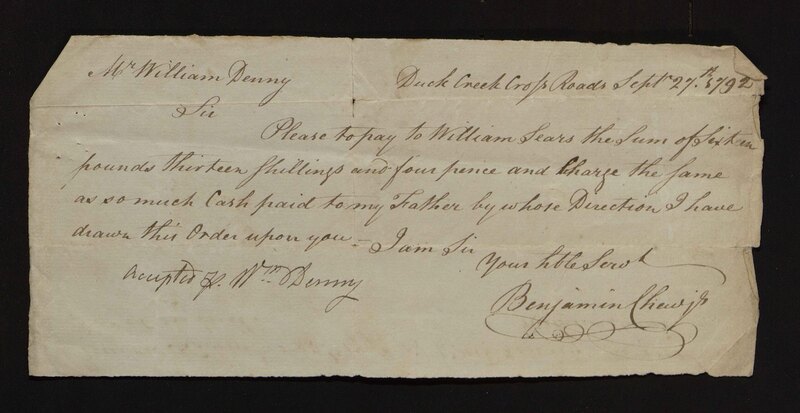 Mr William Denny
Duck Creek Cross Roads Sept 27th 1792
Sir
Please to pay to William Sears the Sum of Sixteen
pounds thirteen shillings and four pence and Charge the same
as so much Cash paid to my Father by whose Direction I have
drawn this Order upon you – I am Sir
Your Hble Servt
Accepted p. Wm Denny
Benjamin Chew jr